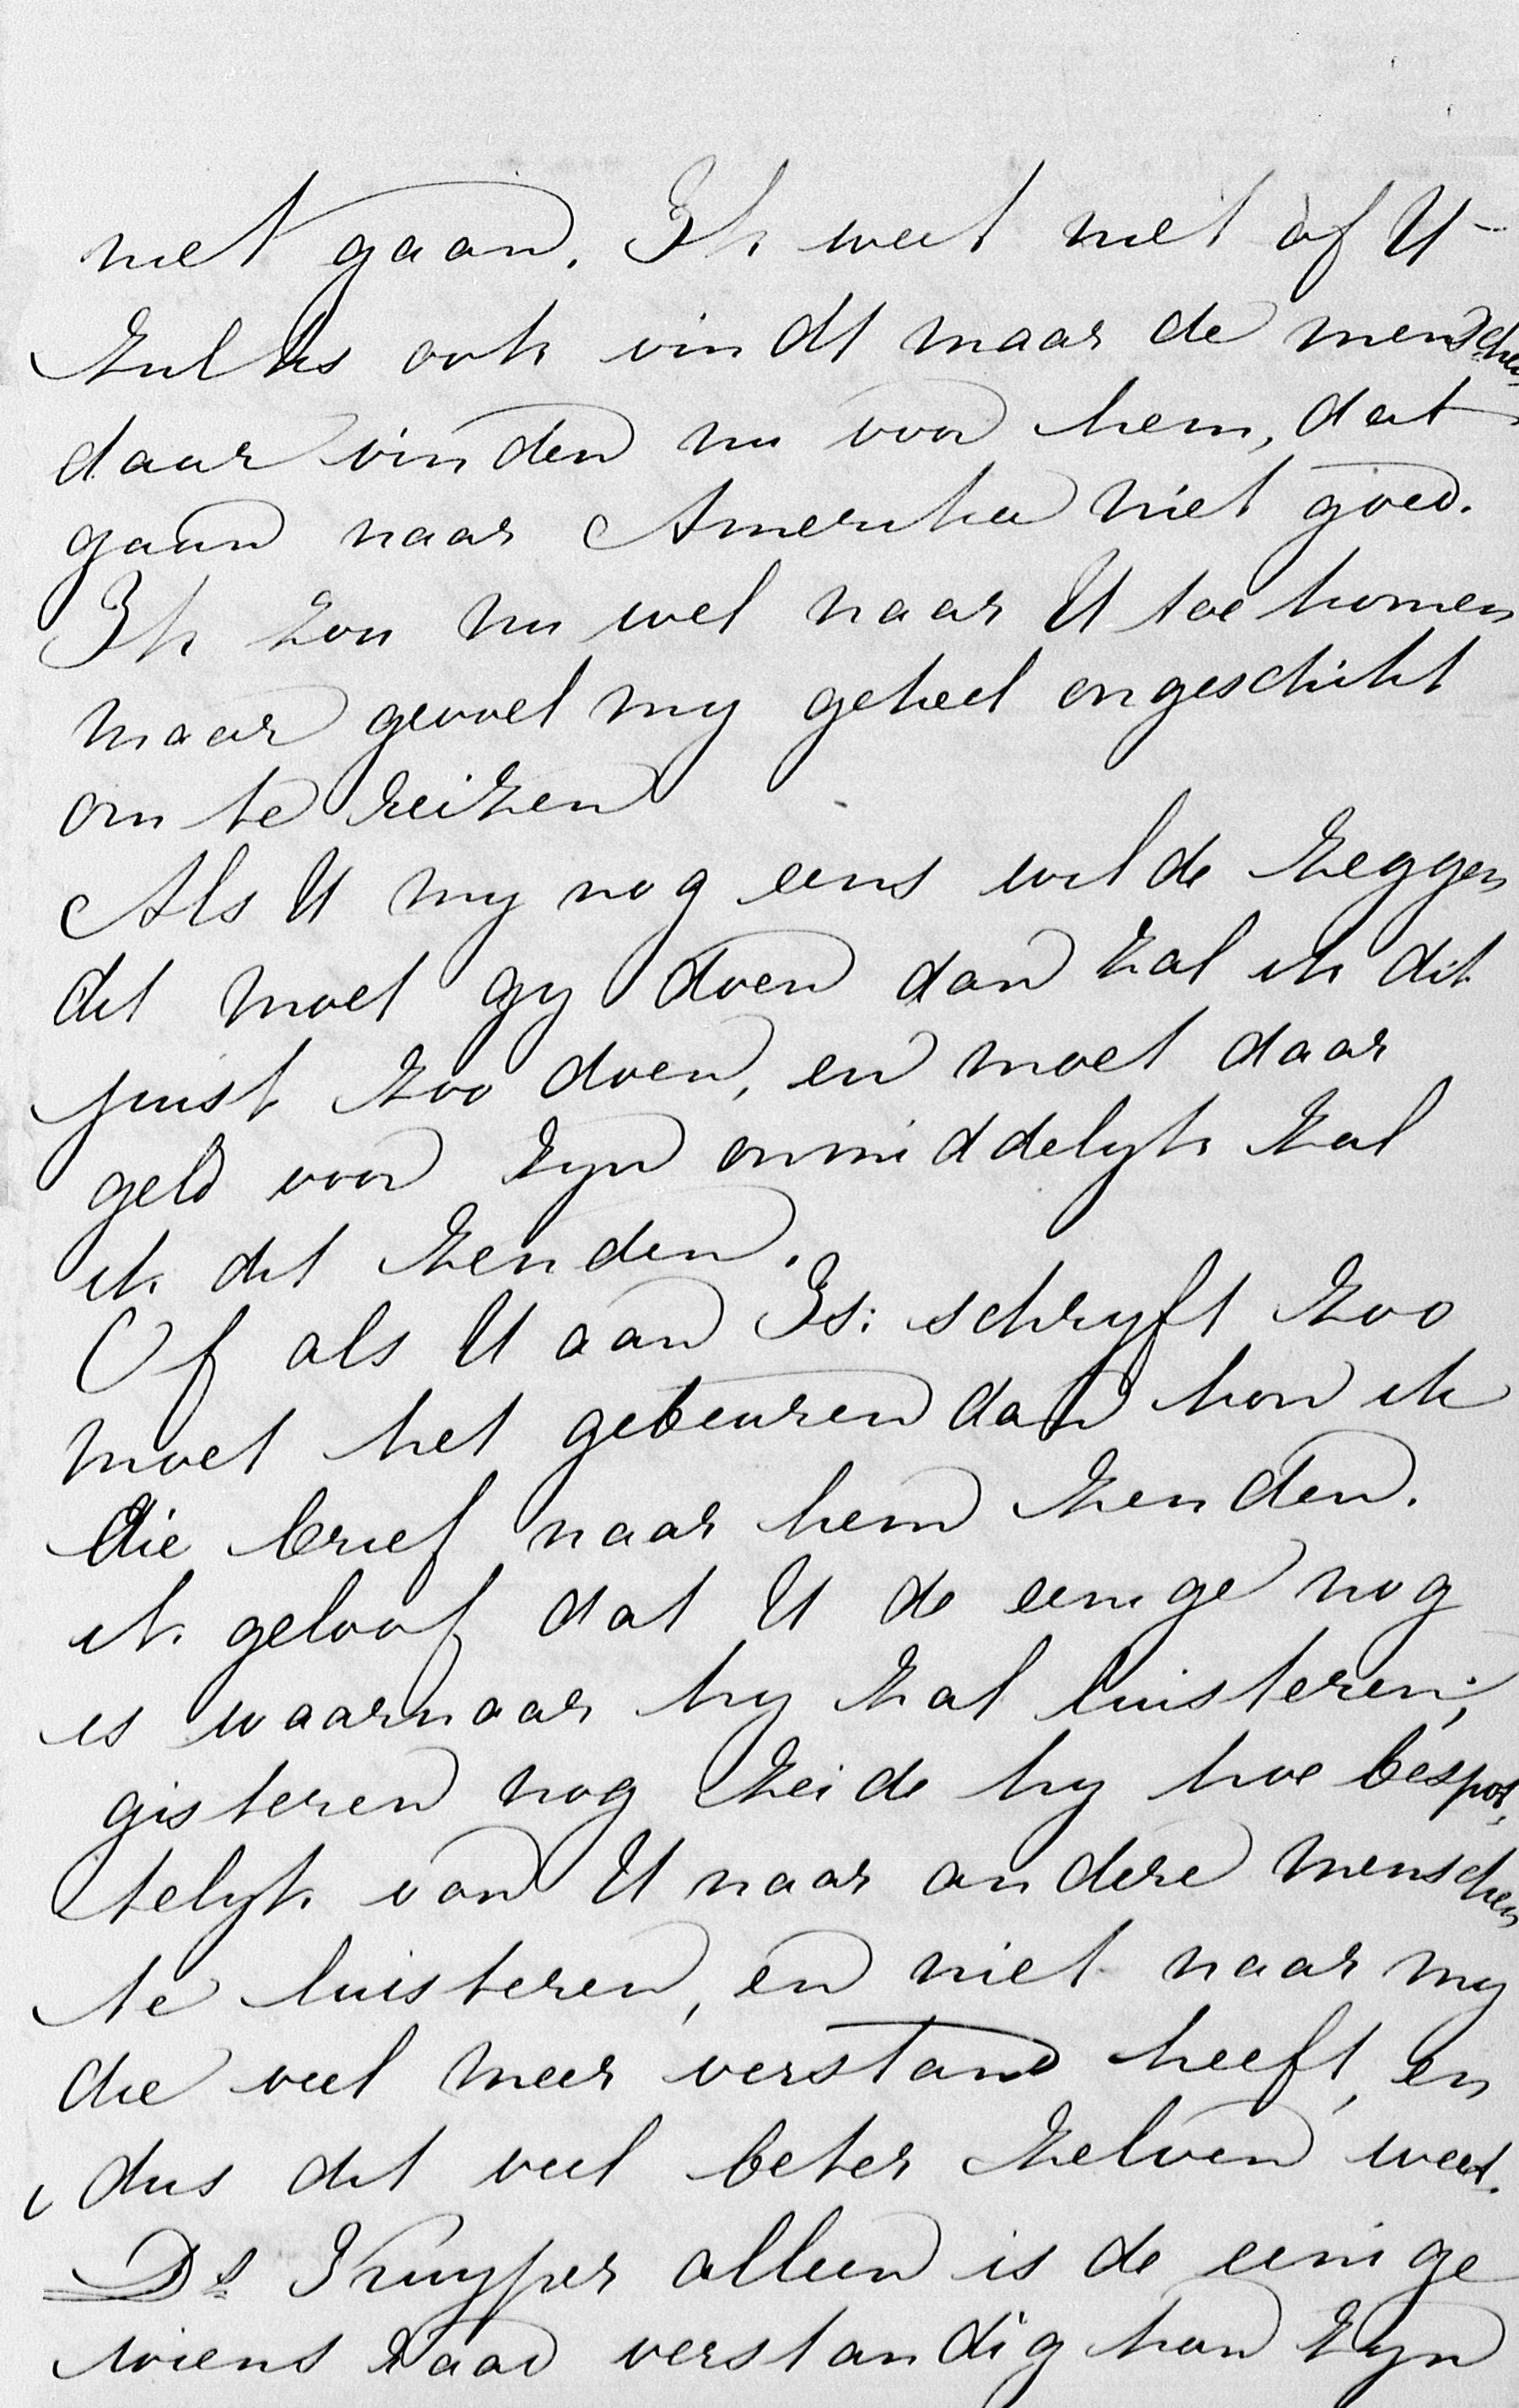 niet gaan. Ik weet niet of U
zulks ook vindt maar de menschen
daar vinden nu voor hem, dat
gaan naar Amerika niet goed.
Ik zou nu wel naar U toe komen
maar gevoel my geheel ongeschikt
om te reizen
Als U my nog eens wilde zeggen
dit moet gy doen dan zal ik dit
juist zoo doen, en moet daar
geld voor zyn onmiddelyk zal
ik dit zenden.
Of als U aan Is: schryft zoo
moet het gebeuren dan kon ik
die brief naar hem zenden.
ik geloof dat U de eenige nog
is waarnaar hy zal luisteren;
gisteren nog zeide hy hoe bespot,
telyk van U naar andere menschen
te luisteren, en niet naar my
die veel meer verstand heeft, en
dus dit veel beter zelven weet.
Ds Kuyper alleen is de eenige
wiens raad verstandig kan zyn